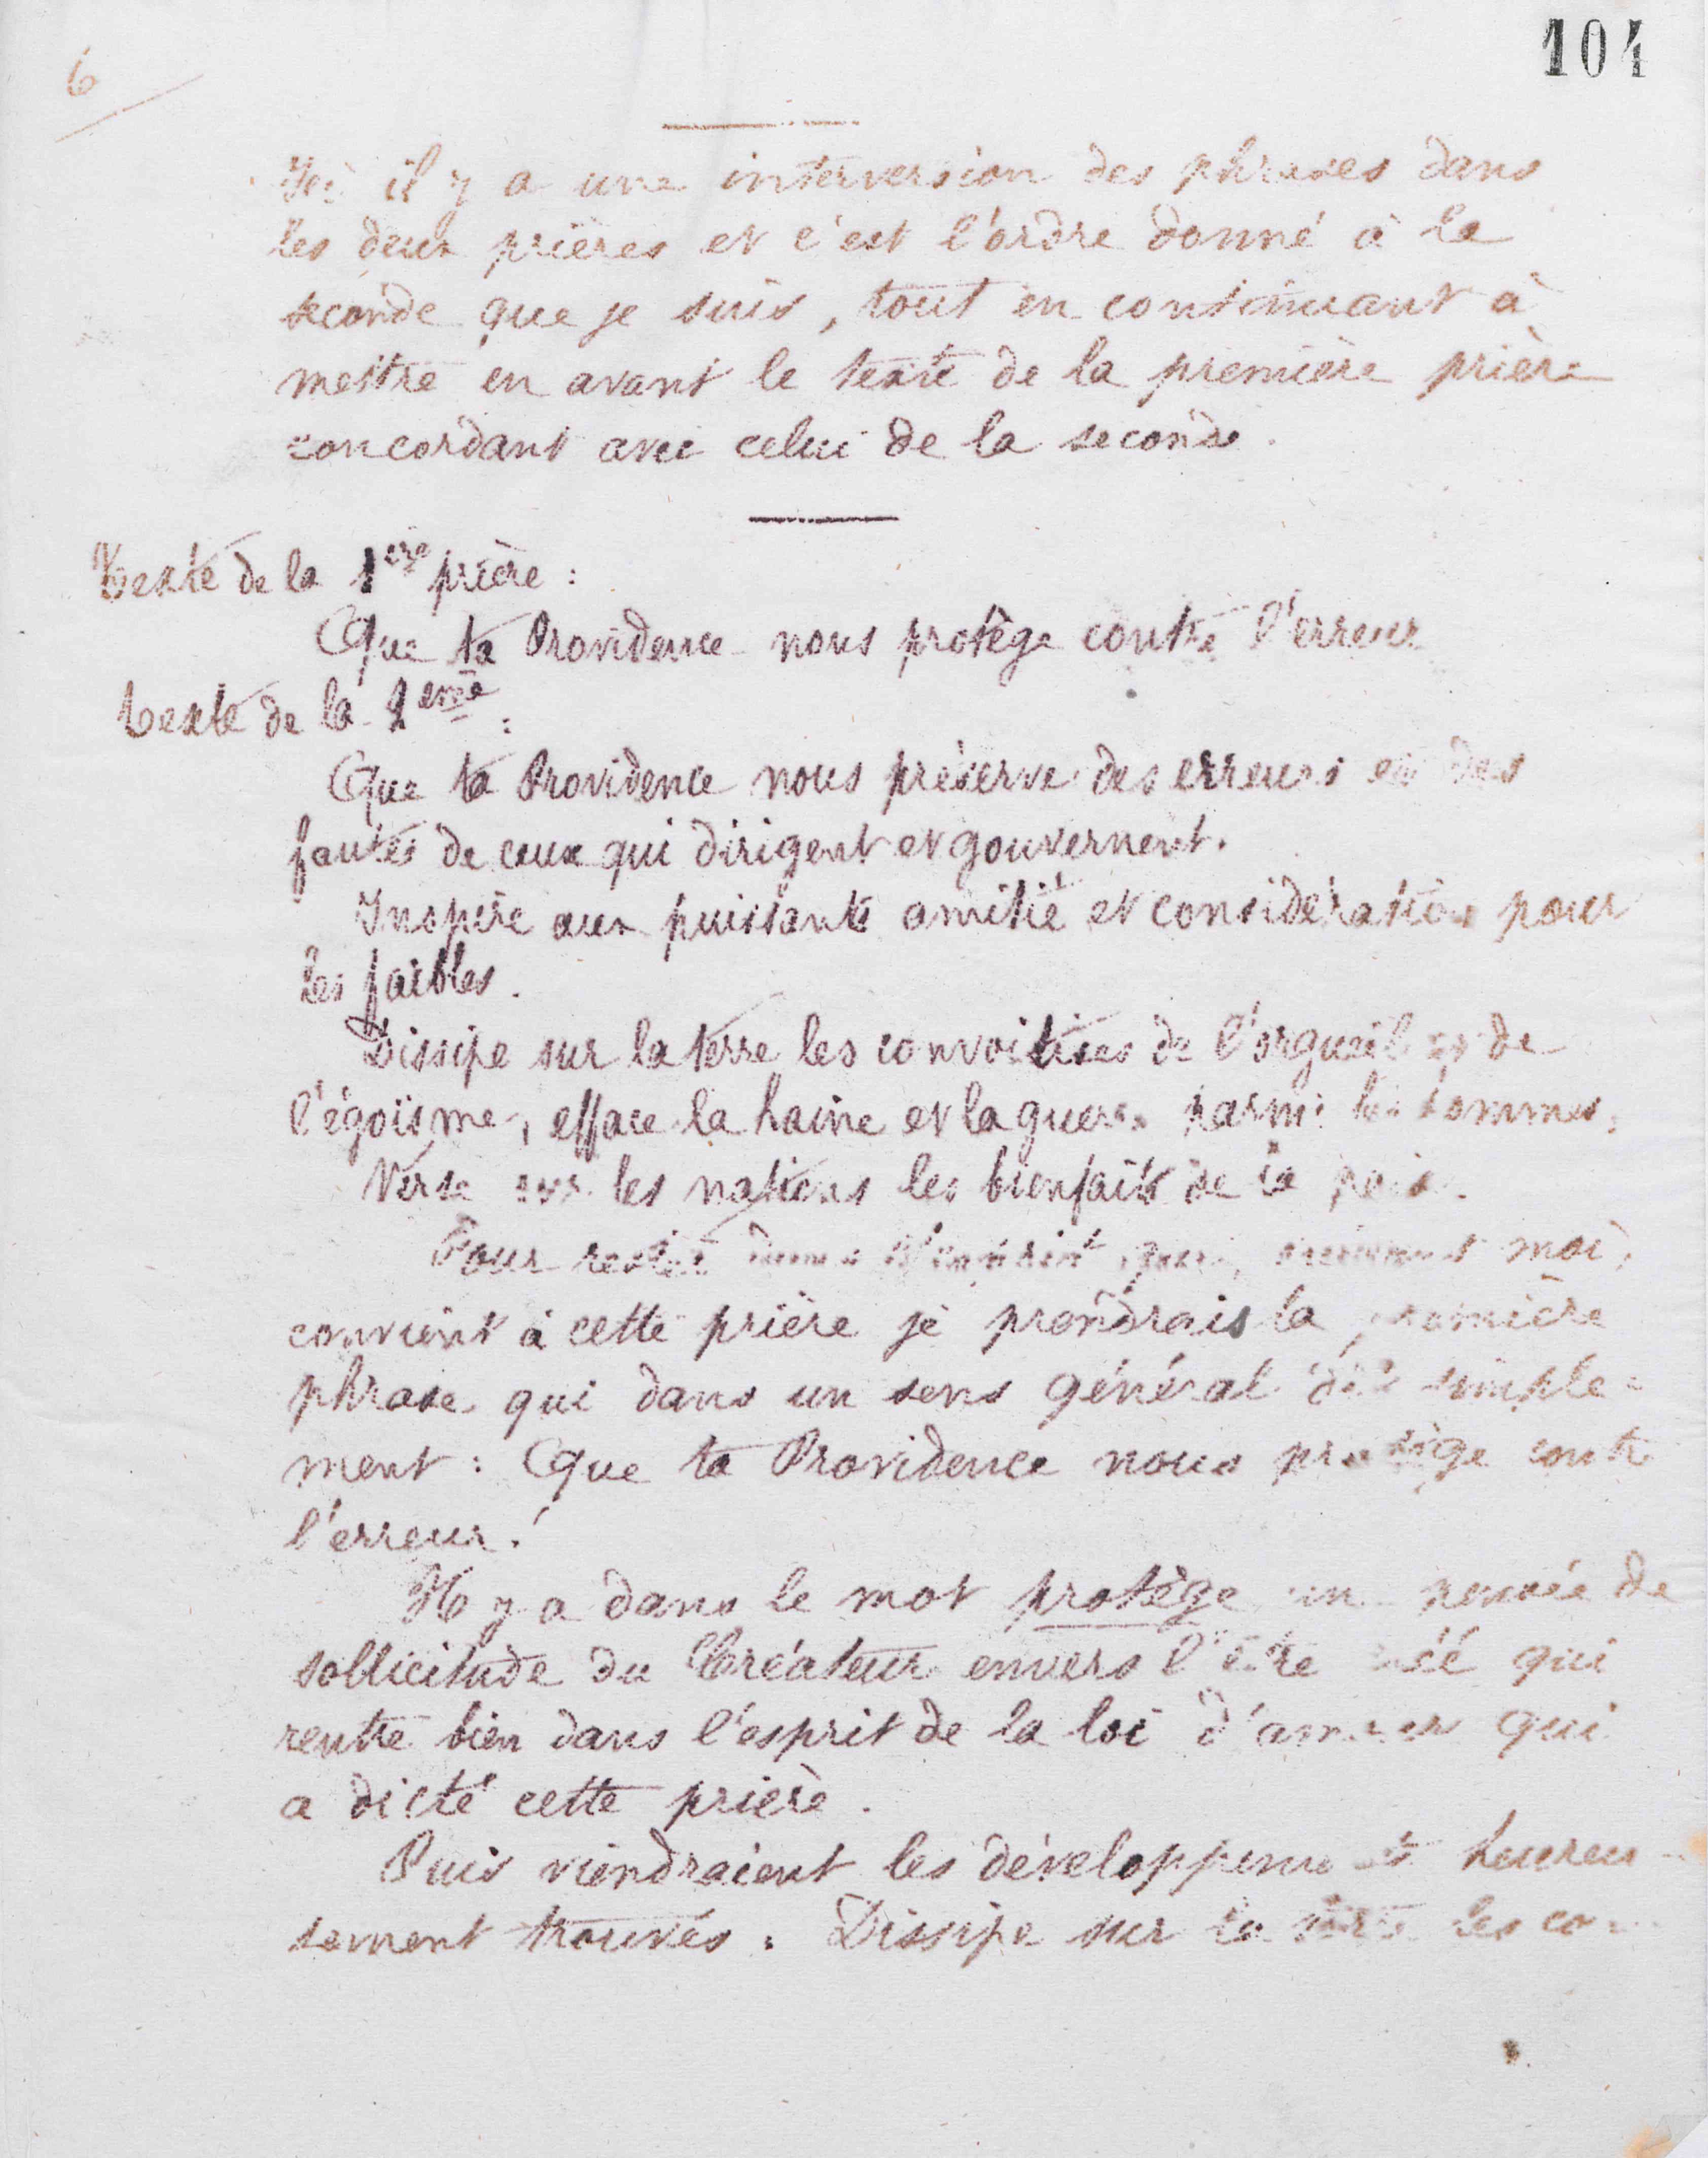 104
6
Ici il y a une interversion des phrases dans
les deux prières et c'est l'ordre donné à la
seconde que je suis, tout en continuant à
mettre en avant le texte de la première prière
concordant avec celui de la seconde.
Texte de la 1ère prière :
Que ta Providence nous protège contre l'erreur
Texte de la 2ème :
Que ta Providence nous préserve des erreurs et des
fautes de ceux qui dirigent et gouvernent.
Inspire aux puissants amitié et considération pour
les faibles.
Dissipe sur la terre les convoitises de l'orgueil et de
l'égoïsme, efface la haine et la guerre parmi les hommes.
Verse sur les nations les bienfaits de la paix.
Pour rester dans l'esprit qui, suivant moi,
convient à cette prière je prendrais la première
phrase qui dans un sens général dit simple=
ment : Que ta Providence nous protège contre
l'erreur !
Il y a dans le mot protège une pensée de
sollicitude du Créateur envers l'être créé qui
rentre bien dans l'esprit de la loi d'amour qui
a dicté cette prière.
Puis viendraient les développements heureu-
sement trouvés : Dissipe sur la terre les con-